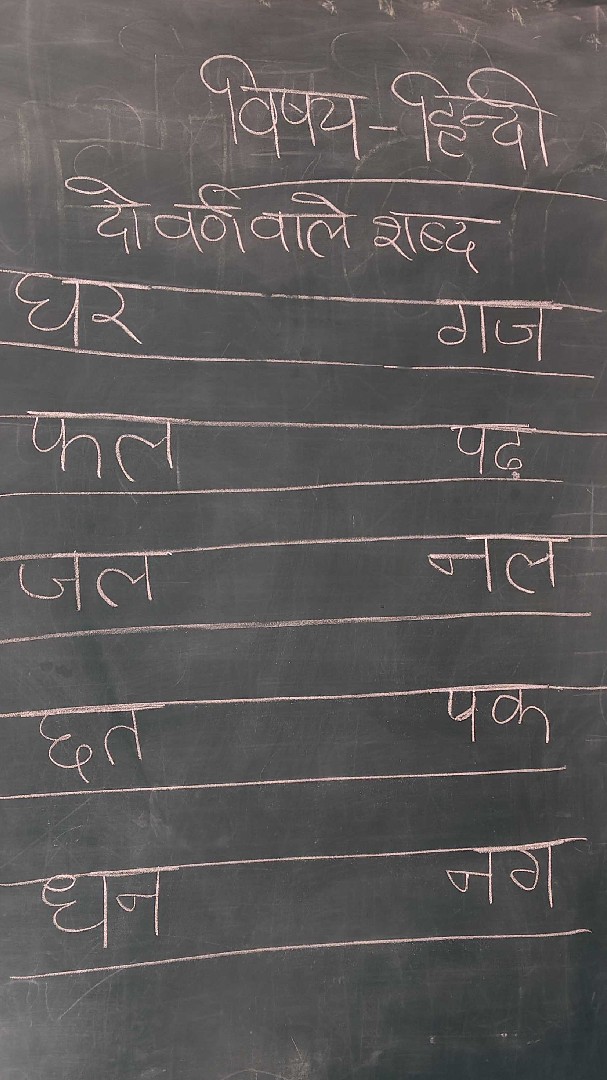 विषय - हिन्दी
दो वर्ण वाले शब्द
घर गज
फल पढ़
जल नल
छत पक
धन नग